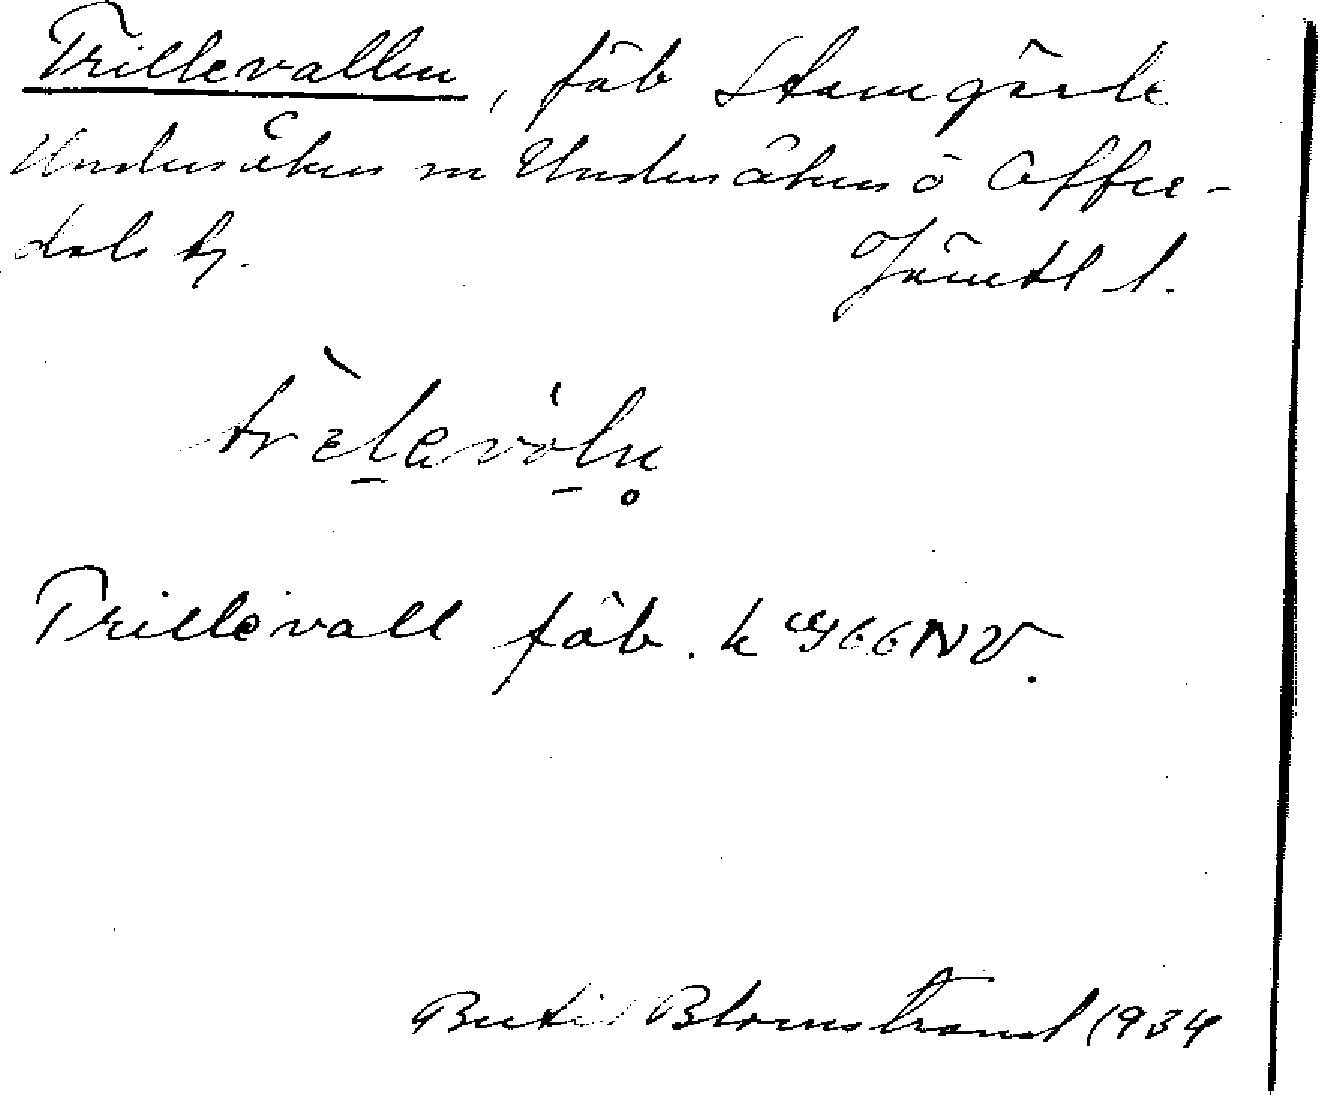 Trillevallen, fäb Stamgärde
Undersåkers sn Undersåkers o Offer-
dals tg. Jämtl l.
Trillevall fäb. k
Bertil Blomstrand 1934